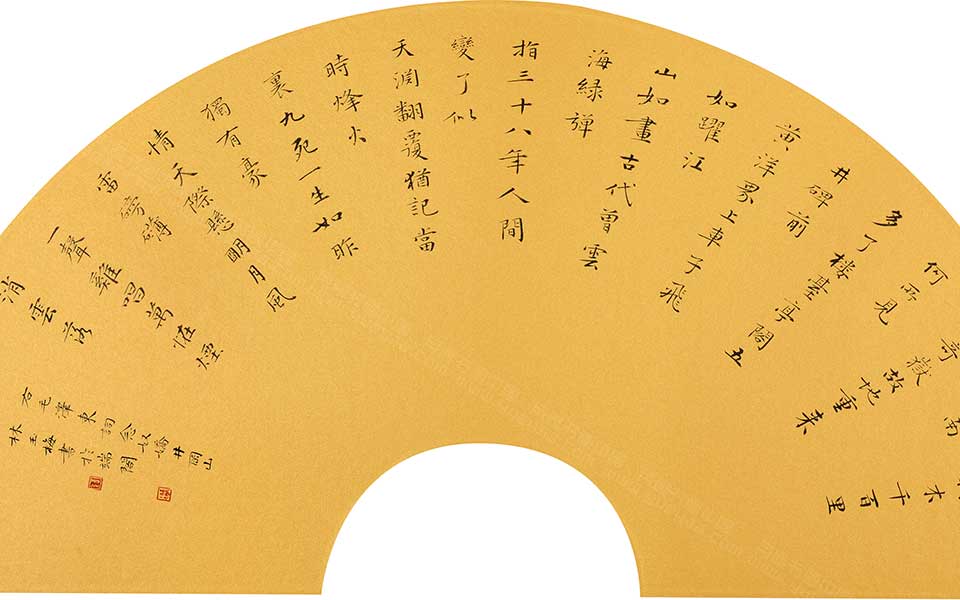 木千百里
南
奇嶽故地重来
何所見
多了楼臺亭閣五
井碑前
黄洋界上車子飛
如躍江
山如畫古代曾雲
海緑彈
指三十八年人間
變了似
天淵翻覆猶記當
時烽火
裏九死一生如昨
獨有豪
情天際懸明月風
雷磅礴
一聲雞唱萬怪煙
消雲落
右毛澤東詞念奴嬌井岡山
林玉梅書於端閣